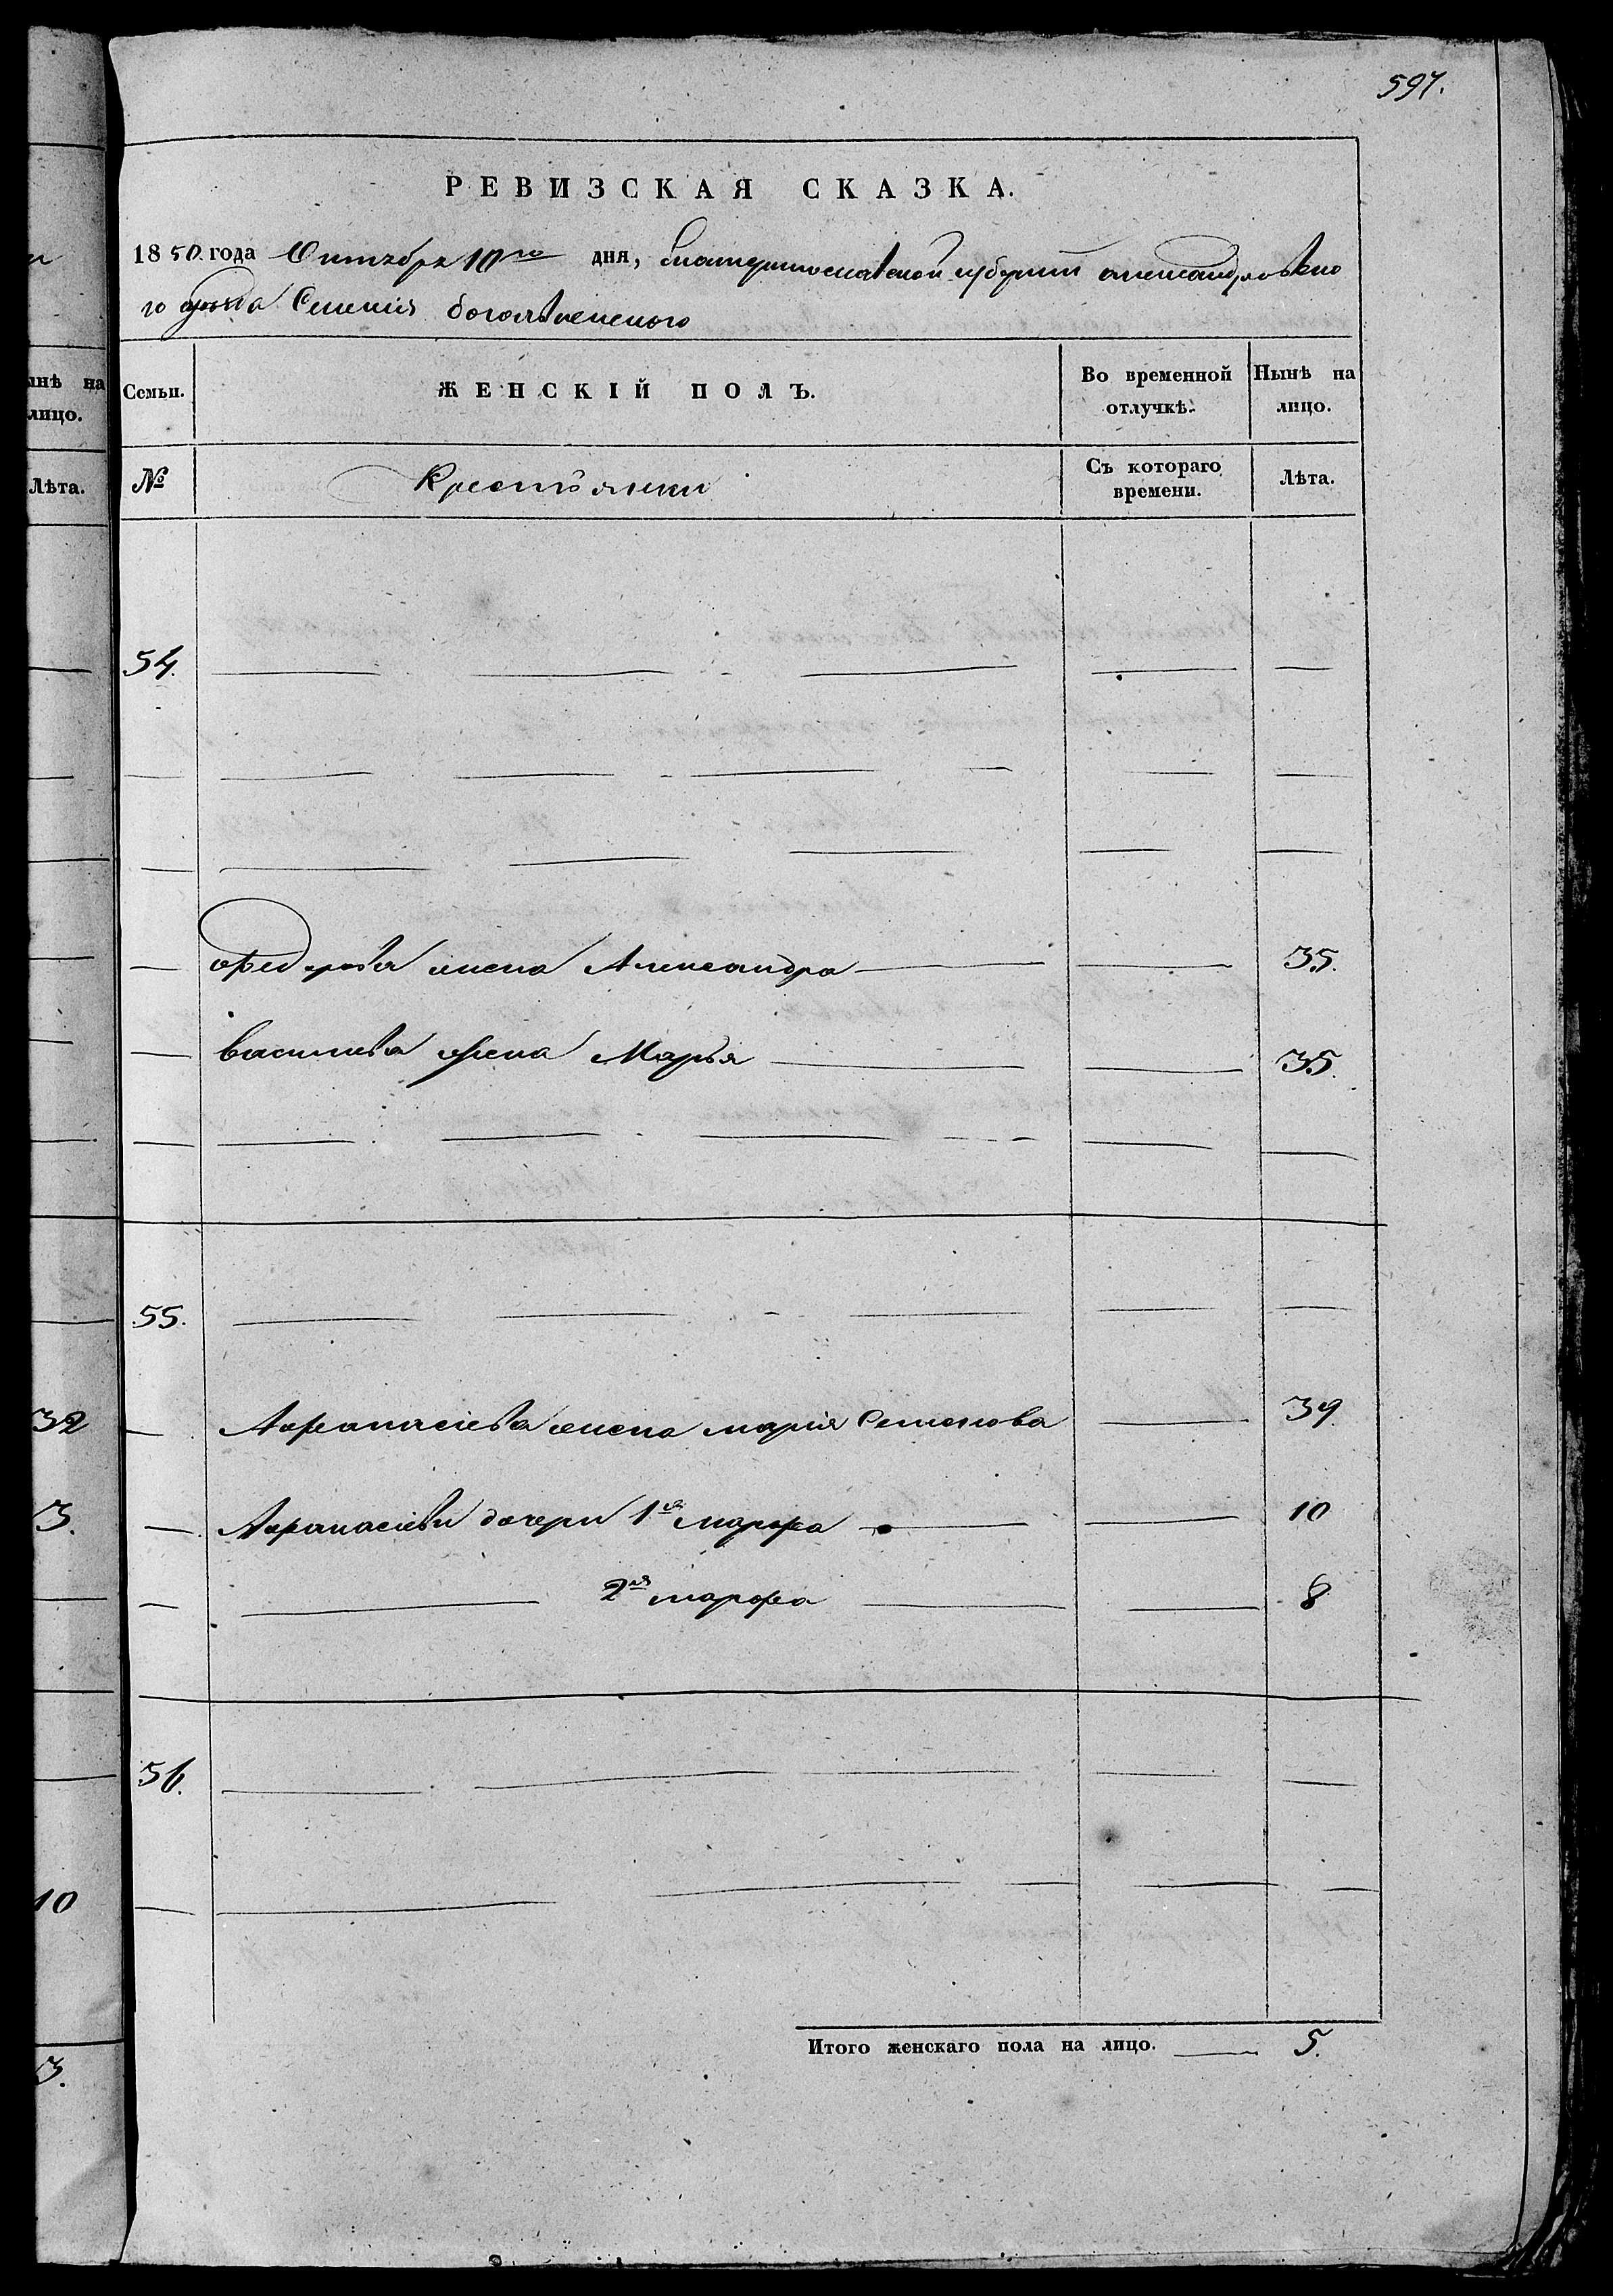 597.
РЕВИЗСКАЯ СКАЗКА.
1850. года Октября 10го дня, Екатеринославской губернии александровско
го уезда Селения боголвленского
Семьи. ЖЕНСКІЙ ПОЛЪ. Во временной отлучкѣ. Нынѣ на лицо.
№ Крестьянки Съ котораго времени. Лѣта.
54.
Федорова жена Александра 35.
василева жена Марья 35.
55.
Афанасіева жена марія Семенова 39.
Афанасіевы дочери 1я марфа 10
2я марфа 8
56.
Итого женскаго пола на лицо. 5.
ынѣ на
лицо.
Лѣта.
32
3.
10
3.